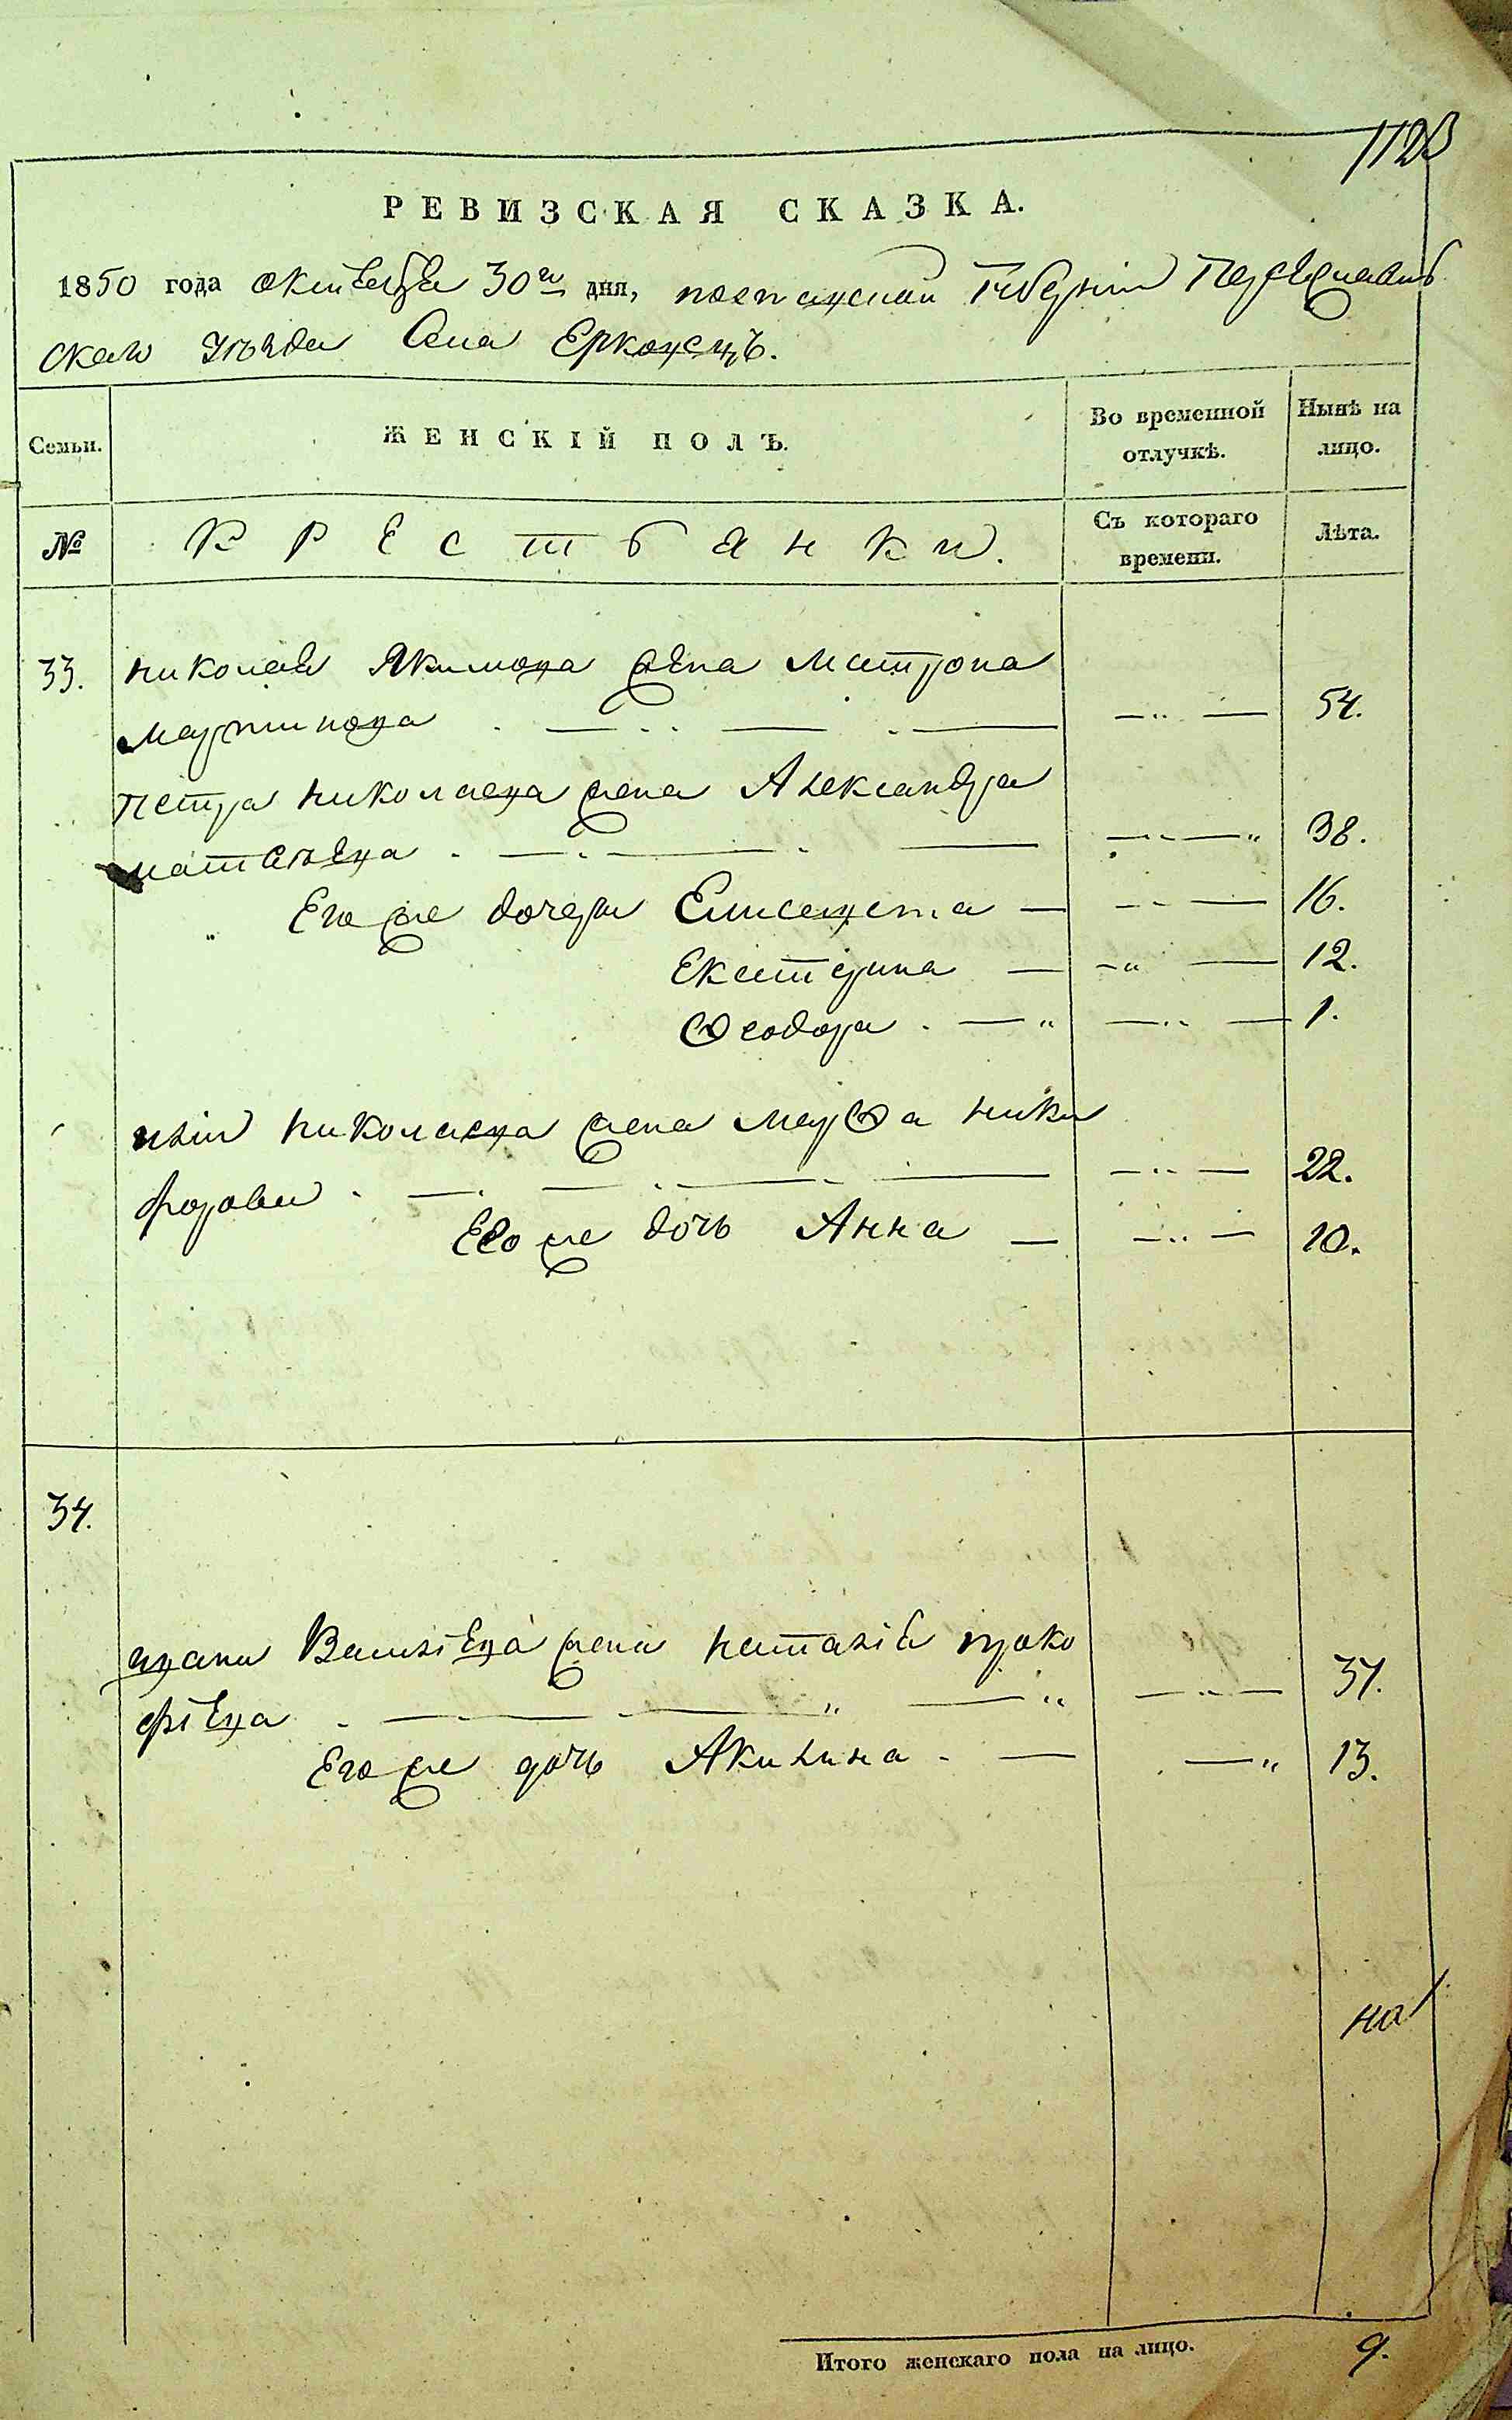 1123
РЕВИЗСКАЯ СКАЗКА.
1850 года октебря 30го дня, полтавской Губерніи Переяслав
скаго уѣзда Села Ерковецъ.
Семьи. ЖЕНСКІЙ ПОЛЪ. Во временной отлучкѣ. Нынѣ на лицо.
№ Крестьянки. Съ котораго времени. Лѣта.
33. николая Якимова жена Матрона
мартинова 54.
петра николаева жена Александра
матвѣева 38.
Его же дочери Елисавета 16.
Екатерина 12.
Ѳеодора 1.
николаева жена марѳа ники
форова 22.
Его же дочь Анна 10.
34.
ивана Василіева жена наталія проко
фіева 37.
Его же дочь Акилина 13.
на
Итого женскаго пола на лицо. 9.